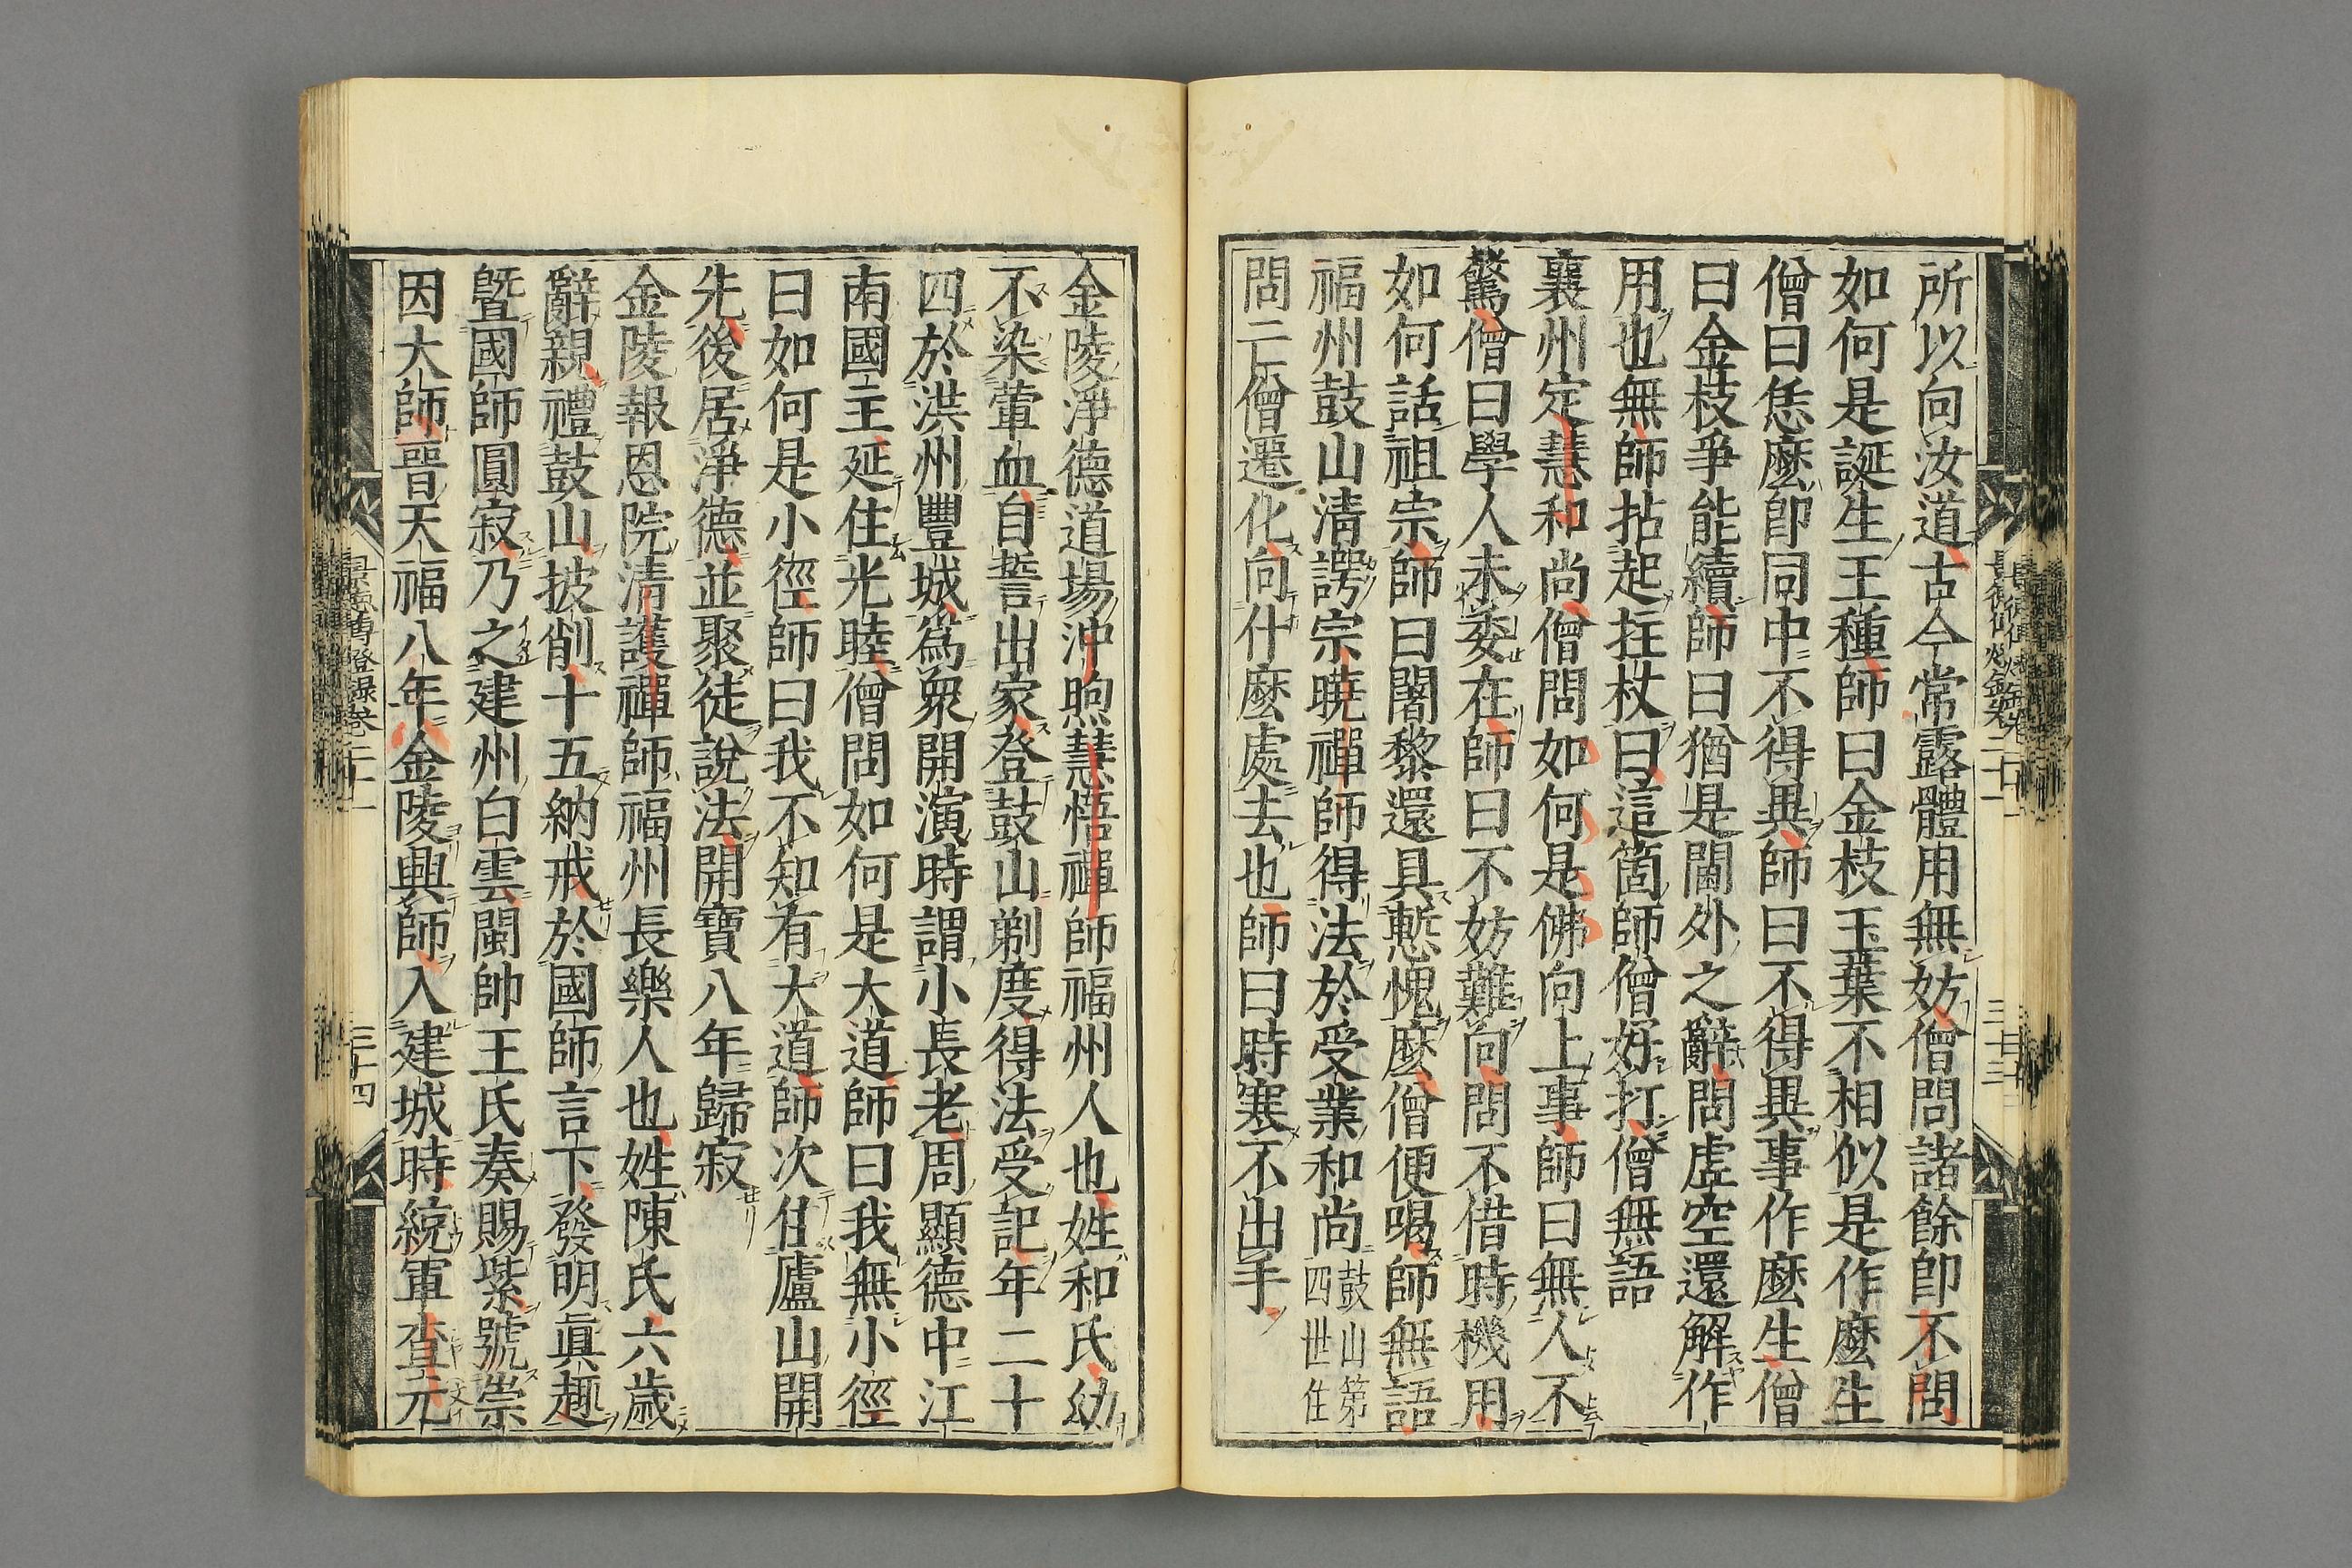 所以向汝道古今常露體用無妨僧問諸餘卽不問
如何是誕生王種師曰金枝玉葉不相似是作麼生
僧曰恁麼卽同中不得異師曰不得異事作麼生僧
曰金枝爭能續師曰猶是閫外之辭問虛空還解作
用也無師拈起拄杖曰這箇師僧好打僧無語
襄州定慧和尚僧問如何是佛向上事師曰無人不
驚僧曰學人未委在師曰不妨難向問不借時機用
如何話祖宗師曰闍黎還具慙愧麼僧便喝師無語
福州鼓山清諤宗曉禪師得法於受業和尚鼓山第四世住
問亡僧遷化向什麼處去也師曰時寒不出手
金陵淨德道場沖煦慧悟禪師福州人也姓和氏幼
不染葷血自誓出家登鼓山剃度得法受記年二十
四於洪州豐城爲衆開演時謂小長老周顯德中江
南國主延住光睦僧問如何是大道師曰我無小徑
曰如何是小徑師曰我不知有大道師次住廬山開
先後居淨德並聚徒說法開寶八年歸寂
金陵報恩院清護禪師福州長樂人也姓陳氏六歲
辭親禮鼓山披削十五納戒於國師言下發明眞趣
曁國師圓寂乃之建州白雲閩帥王氏奏賜紫號崇
因大師晉天福八年金陵興師入建城時統軍查元